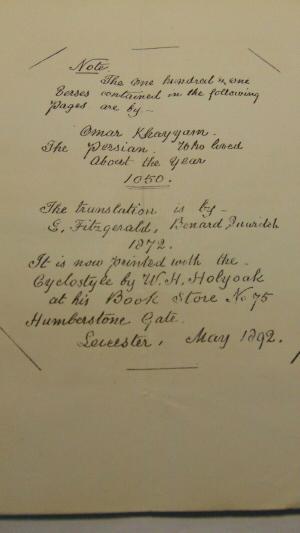 Note.
The one hundred & one
verses contained in the following
pages are by –
Omar Khayyam.
The Persian. Who lived
About the Year
1050.
The translation is by –
G. Fitzgerald, Benard
1872.
It is now printed with the
Cyclostyle by W. H. Holyoak
at his Book Store No 75
Humberstone Gate.
Leicester, May 1892.